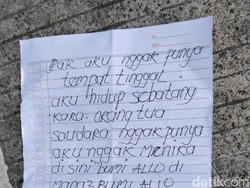 pak aku nggak punya
tempat tinggal
aku hidup sebatang
kara. orang tua
saudara nggak punya
aku nggak menika
disini BUMI ALLO di
BUMI ALLO
detikcom